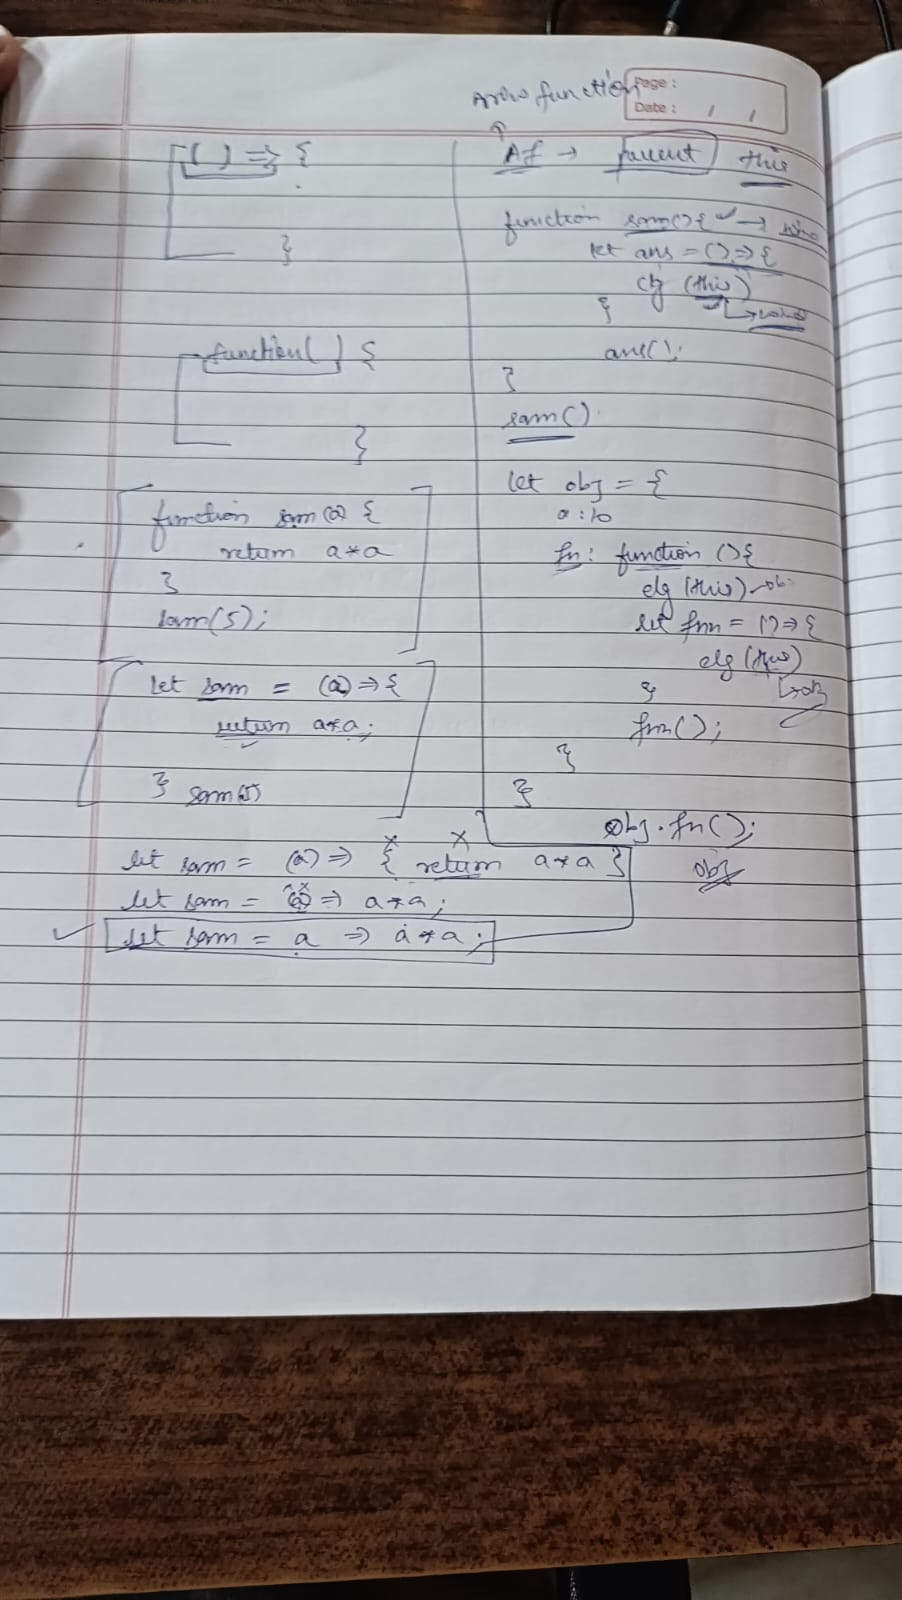 Arrow function
Page :
Date : / /
() => {
}
function() {
}
function sam(a) {
return a*a
}
sam(5);
let sam = (a) => {
return a*a;
} sam(5)
let sam = (a) => { return a*a }
let sam = (a) => a*a;
let sam = a => a*a;
Af → parent this
function sam() { →
let ans = () => {
clg (this)
}
ans();
}
sam()
let obj = {
a : 10
fn : function () {
clg (this)
let fnn = () => {
clg (this)
}
fnn();
}
}
obj.fn();
obj